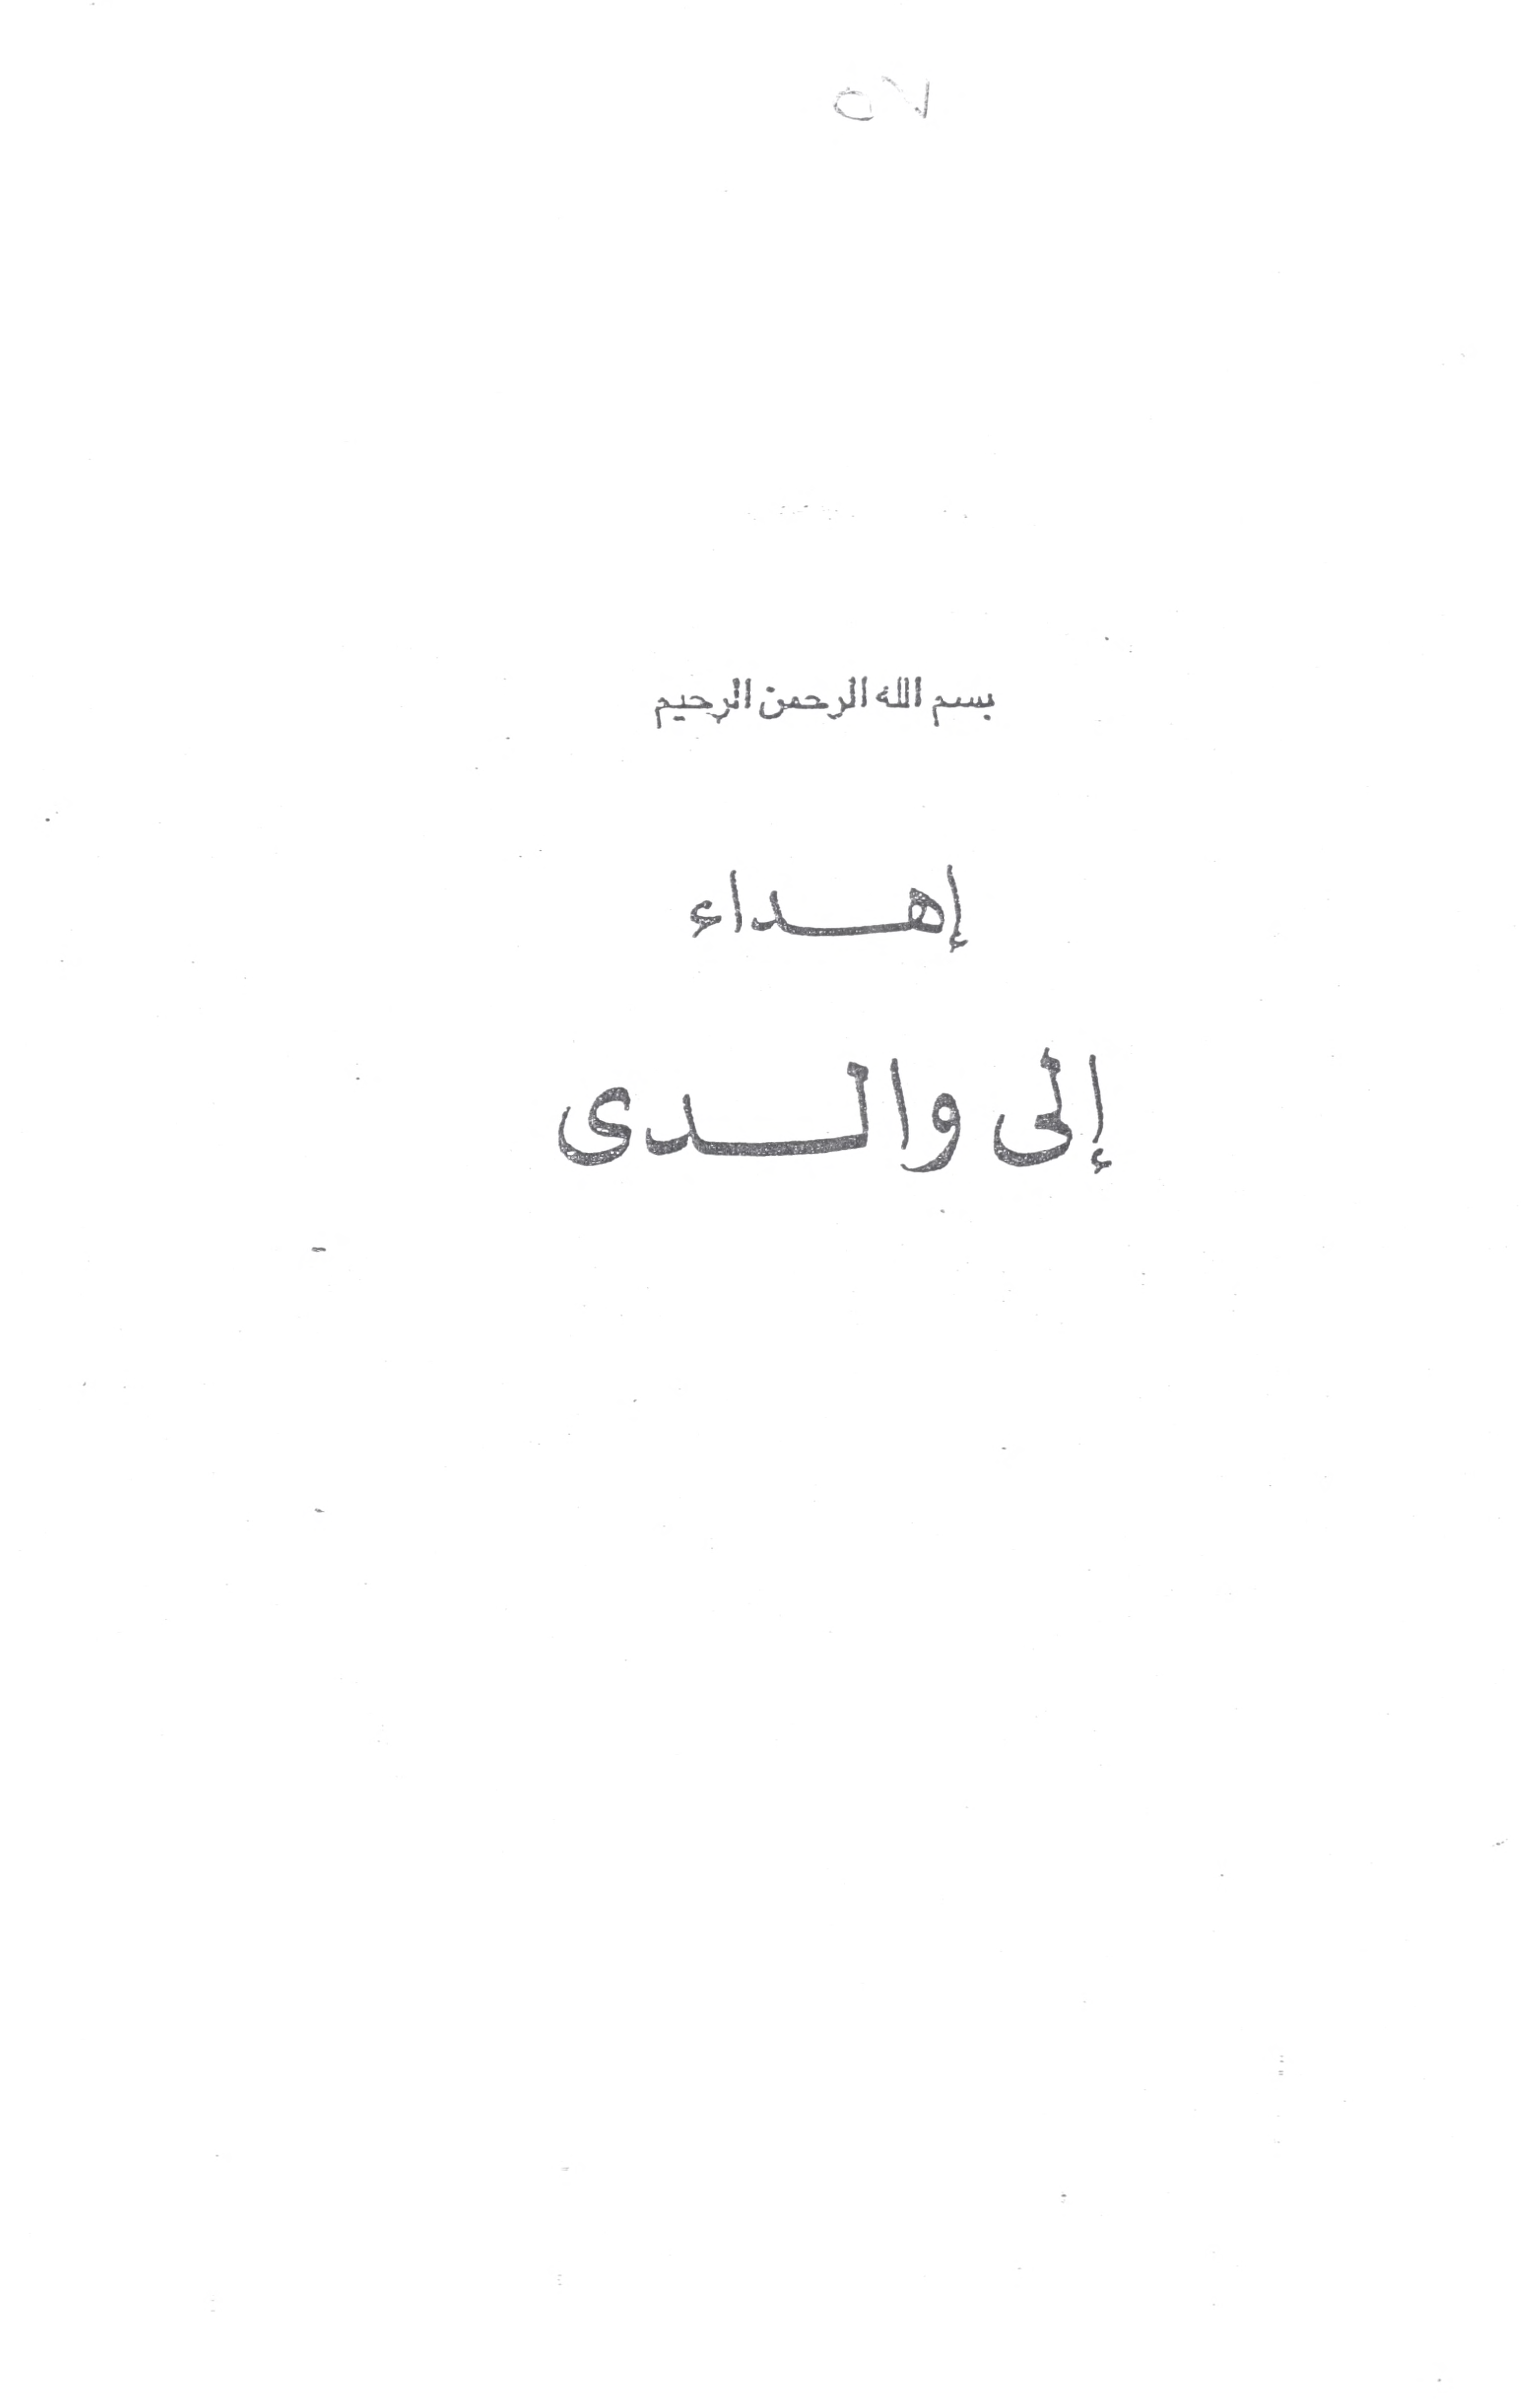 ٥٧
بسم الله الرحمن الرحيم
إهــداء
إلى والــدى